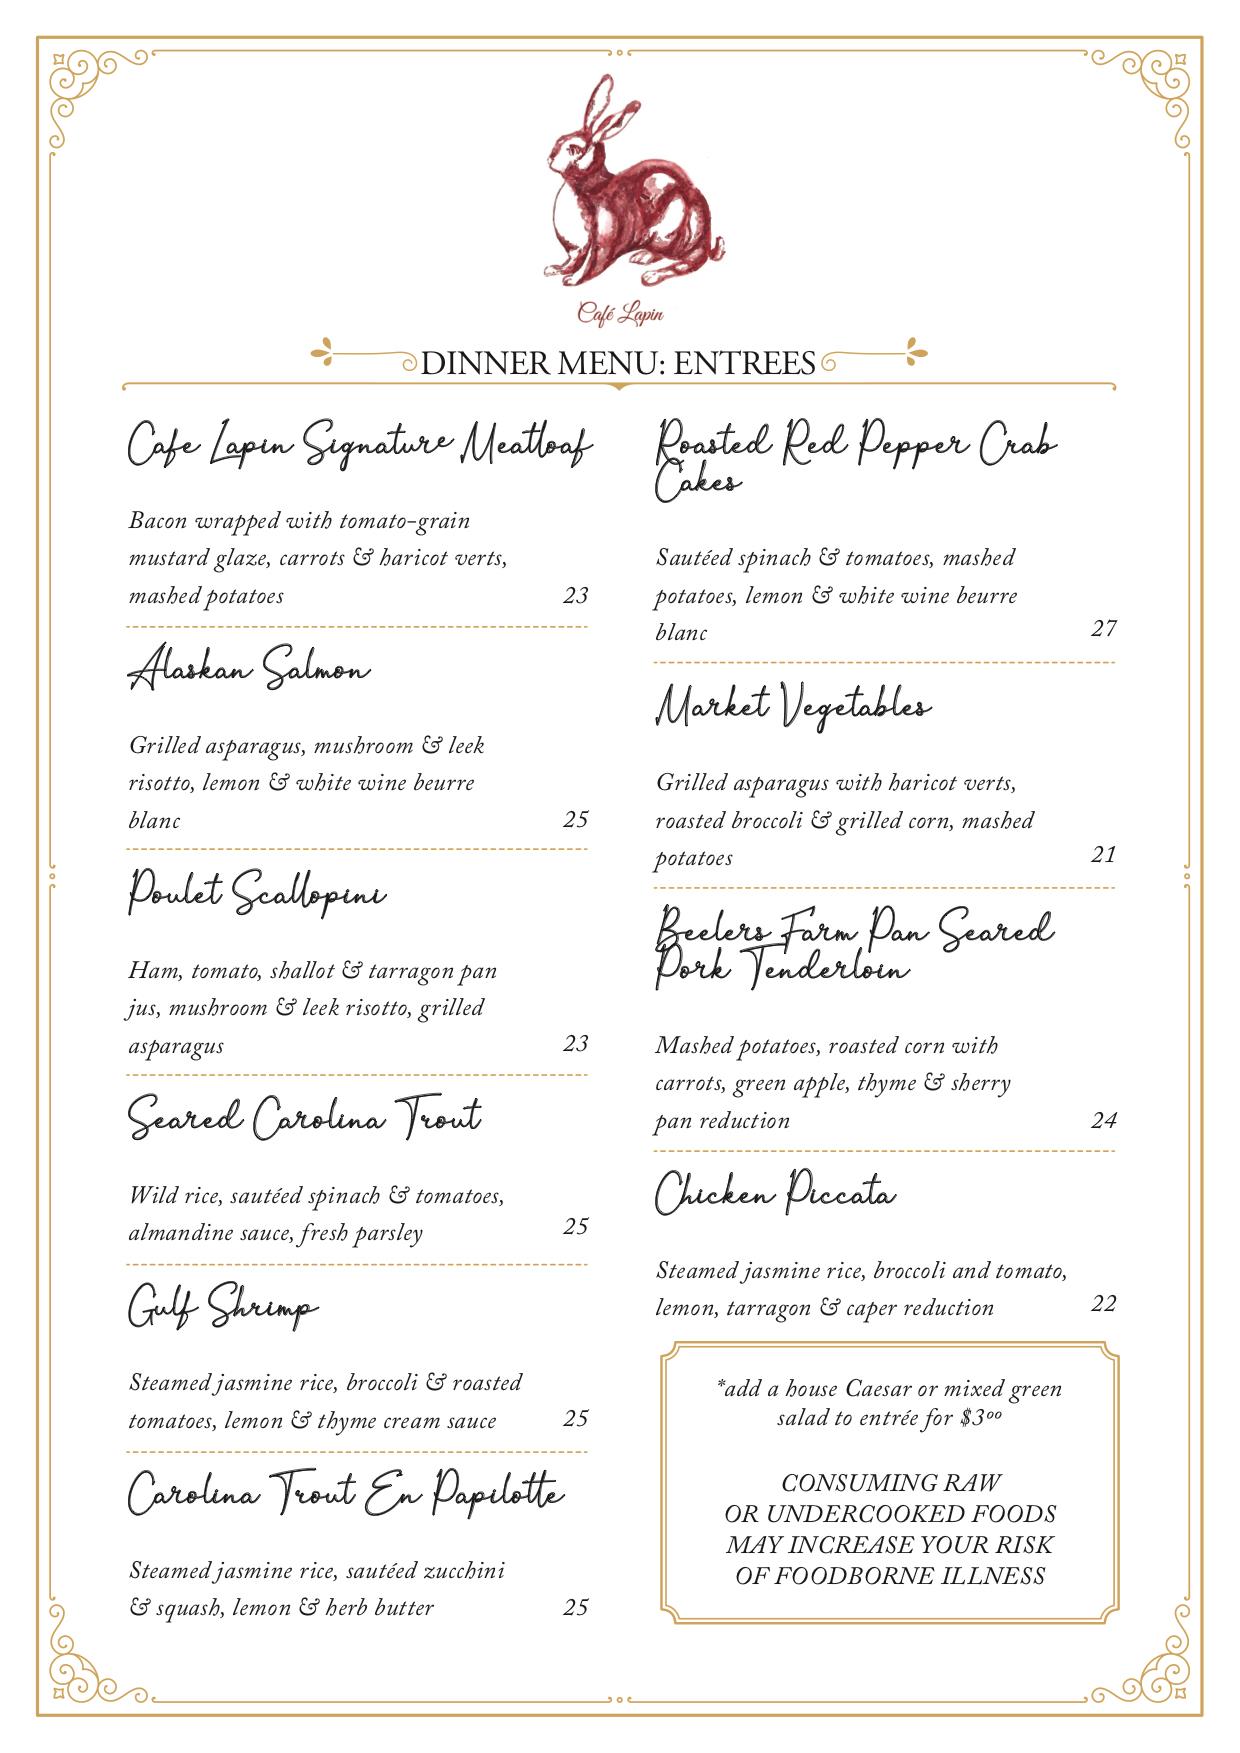 Café Lapin
DINNER MENU: ENTREES
Cafe Lapin Signature Meatloaf
Bacon wrapped with tomato-grain
mustard glaze, carrots & haricot verts,
mashed potatoes 23
Alaskan Salmon
Grilled asparagus, mushroom & leek
risotto, lemon & white wine beurre
blanc 25
Poulet Scallopini
Ham, tomato, shallot & tarragon pan
jus, mushroom & leek risotto, grilled
asparagus 23
Seared Carolina Trout
Wild rice, sautéed spinach & tomatoes,
almandine sauce, fresh parsley 25
Gulf Shrimp
Steamed jasmine rice, broccoli & roasted
tomatoes, lemon & thyme cream sauce 25
Carolina Trout En Papilotte
Steamed jasmine rice, sautéed zucchini
& squash, lemon & herb butter 25
Roasted Red Pepper Crab
Cakes
Sautéed spinach & tomatoes, mashed
potatoes, lemon & white wine beurre
blanc 27
Market Vegetables
Grilled asparagus with haricot verts,
roasted broccoli & grilled corn, mashed
potatoes 21
Beelers Farm Pan Seared
Pork Tenderloin
Mashed potatoes, roasted corn with
carrots, green apple, thyme & sherry
pan reduction 24
Chicken Piccata
Steamed jasmine rice, broccoli and tomato,
lemon, tarragon & caper reduction 22
*add a house Caesar or mixed green
salad to entrée for $3⁰⁰
CONSUMING RAW
OR UNDERCOOKED FOODS
MAY INCREASE YOUR RISK
OF FOODBORNE ILLNESS